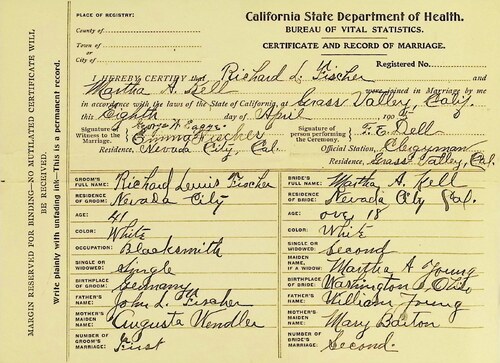 California State Department of Health.
BUREAU OF VITAL STATISTICS.
CERTIFICATE AND RECORD OF MARRIAGE.
PLACE OF REGISTRY:
County of
Town of
or
City of
Registered No.
MARGIN RESERVED FOR BINDING—NO MUTILATED CERTIFICATE WILL BE RECEIVED.
Write plainly with unfading ink—This is a permanent record.
I HEREBY CERTIFY that Richard L. Fischer and
Martha A. Kell were joined in Marriage by me
in accordance with the laws of the State of California, at Grass Valley, Calif.
this Eighth day of April 190
Signature of Witness to the Marriage George W.
Emma Fischer
Residence, Nevada City, Cal.
Signature of person performing the Ceremony. Bell
Official Station, Clergyman
Residence, Grass Valley, Cal.
GROOM'S FULL NAME: Richard Lewis Fischer
RESIDENCE OF GROOM: Nevada City
AGE: 41
COLOR: White
OCCUPATION: Blacksmith
SINGLE OR WIDOWED: Single
BIRTHPLACE OF GROOM: Germany
FATHER'S NAME: John L. Fischer
MOTHER'S MAIDEN NAME: Augusta Wendler
NUMBER OF GROOM'S MARRIAGE: First
BRIDE'S FULL NAME: Martha A. Kell
RESIDENCE OF BRIDE: Nevada City Cal.
AGE: over 18
COLOR: White
SINGLE OR WIDOWED: Second
MAIDEN NAME, IF A WIDOW: Martha A Young
BIRTHPLACE OF BRIDE: Washington Ohio
FATHER'S NAME: William Young
MOTHER'S MAIDEN NAME: Mary Barton
NUMBER OF BRIDE'S MARRIAGE: Second.